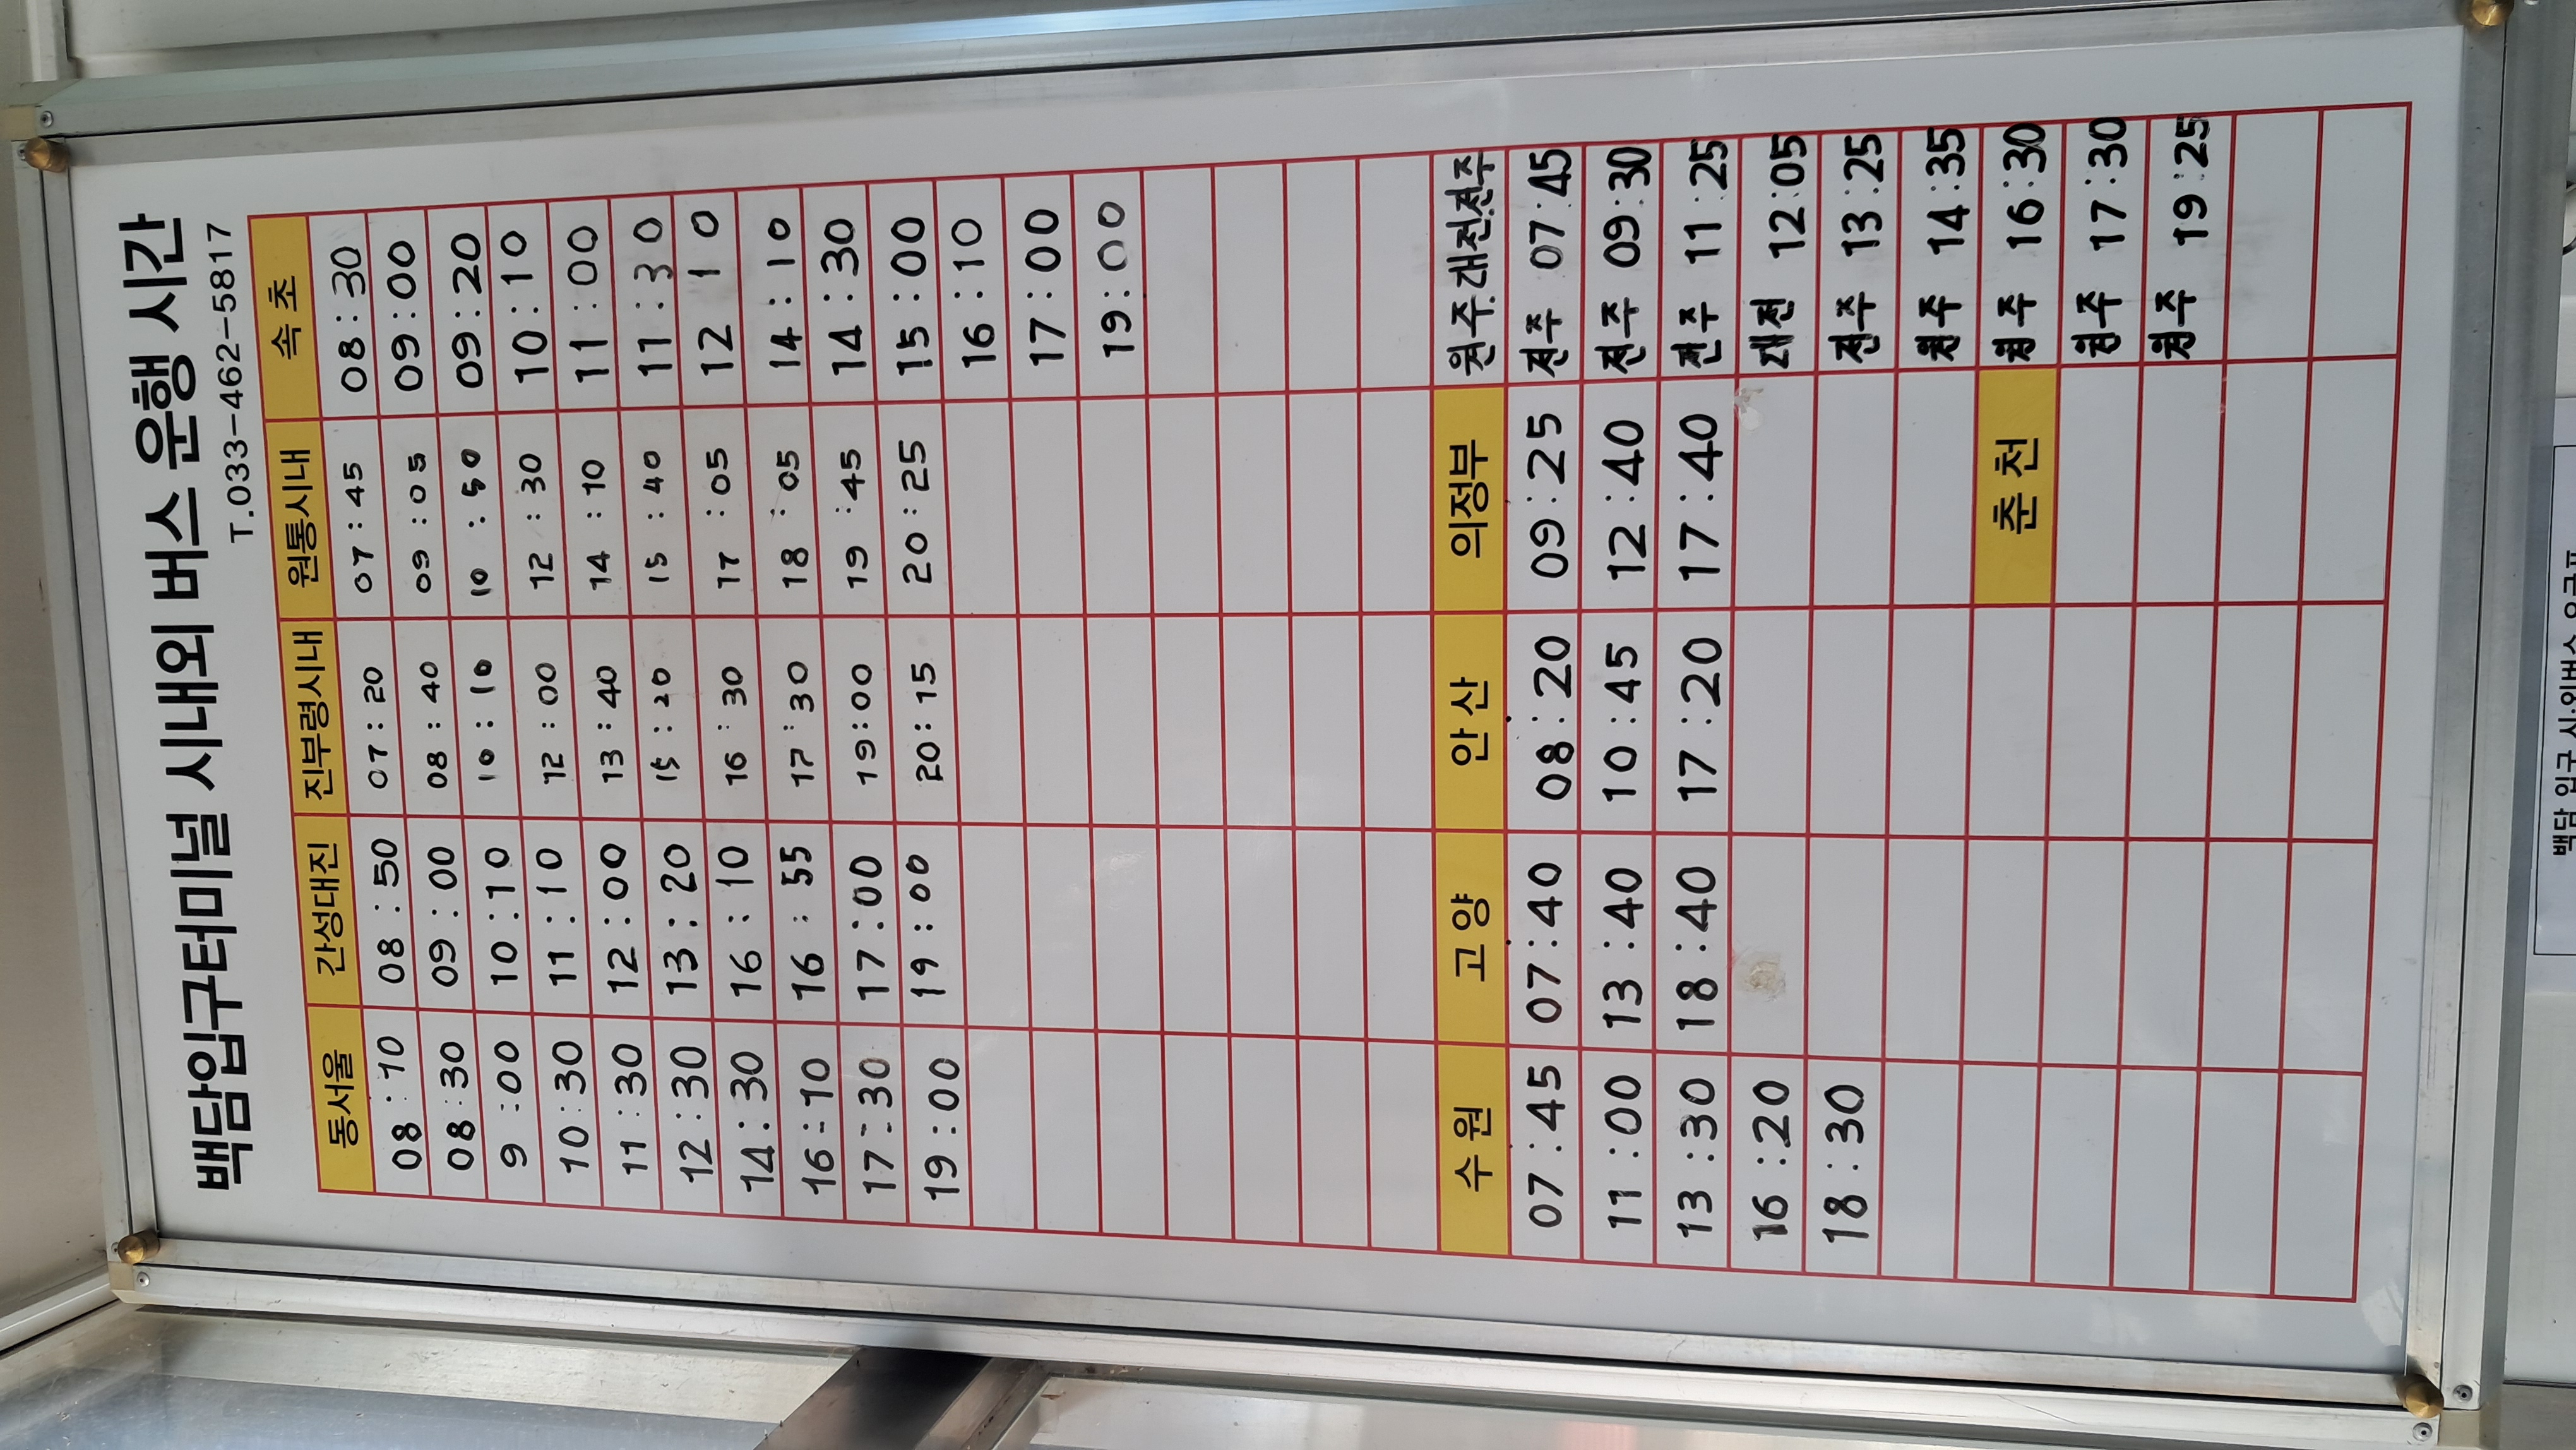 백담입구터미널 시내외 버스 운행 시간
T.033-462-5817
동서울 간성대진 진부령시내 원통시내 속초
08:10 08:50 07:20 07:45 08:30
08:30 09:00 08:40 09:05 09:00
9:00 10:10 10:10 10:50 09:20
10:30 11:10 12:00 12:30 10:10
11:30 12:00 13:40 14:10 11:00
12:30 13:20 15:20 15:40 11:30
14:30 16:10 16:30 17:05 12 10
16:10 16:55 17:30 18:05 14:10
17:30 17:00 19:00 19:45 14:30
19:00 19:00 20:15 20:25 15:00
16:10
17:00
19:00
수원 고양 안산 의정부 원주.대전.전주
07:45 07:40 08:20 09:25 전주 07:45
11:00 13:40 10:45 12:40 전주 09:30
13:30 18:40 17:20 17:40 전주 11:25
16:20 대전 12:05
18:30 전주 13:25
원주 14:35
춘천 원주 16:30
원주 17:30
원주 19:25
백담 입구